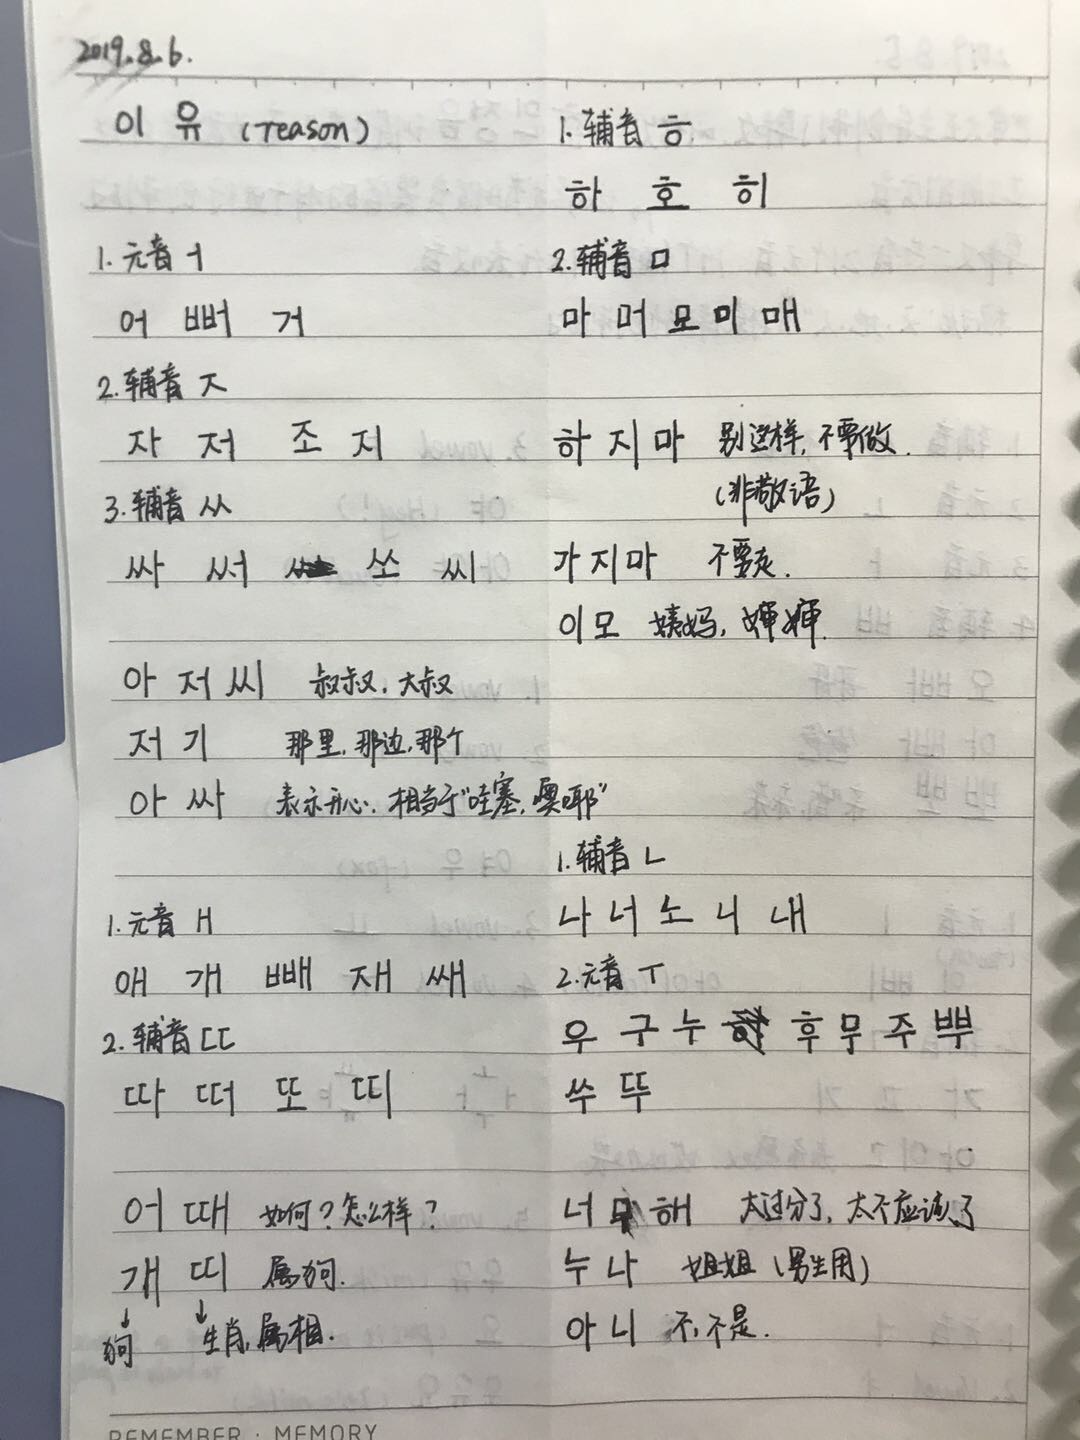 2019.8.6.
이유 (reason)
1. 元音 ㅓ
어 뻐 거
2. 辅音 ㅈ
자 저 조 지
3. 辅音 ㅆ
싸 써 쏘 씨
아저씨 叔叔, 大叔
저기 那里, 那边, 那个
아싸 表示开心, 相当于"哇塞, 噢耶"
1. 元音 ㅐ
애 개 빼 재 쌔
2. 辅音 ㄸ
따 떠 또 띠
어때 如何? 怎么样?
개띠 属狗.
↓ ↓
狗 生肖, 属相.
1. 辅音 ㅎ
하 호 히
2. 辅音 ㅁ
마 머 모 미 매
하지마 别这样, 不要做.
(非敬语)
가지마 不要走.
이모 姨妈, 婶婶.
1. 辅音 ㄴ
나 너 노 니 내
2. 元音 ㅜ
우 구 누 후 무 주 뿌
쑤 뚜
너무해 太过分了, 太不应该了
누나 姐姐 (男生用)
아니 不, 不是.
REMEMBER · MEMORY